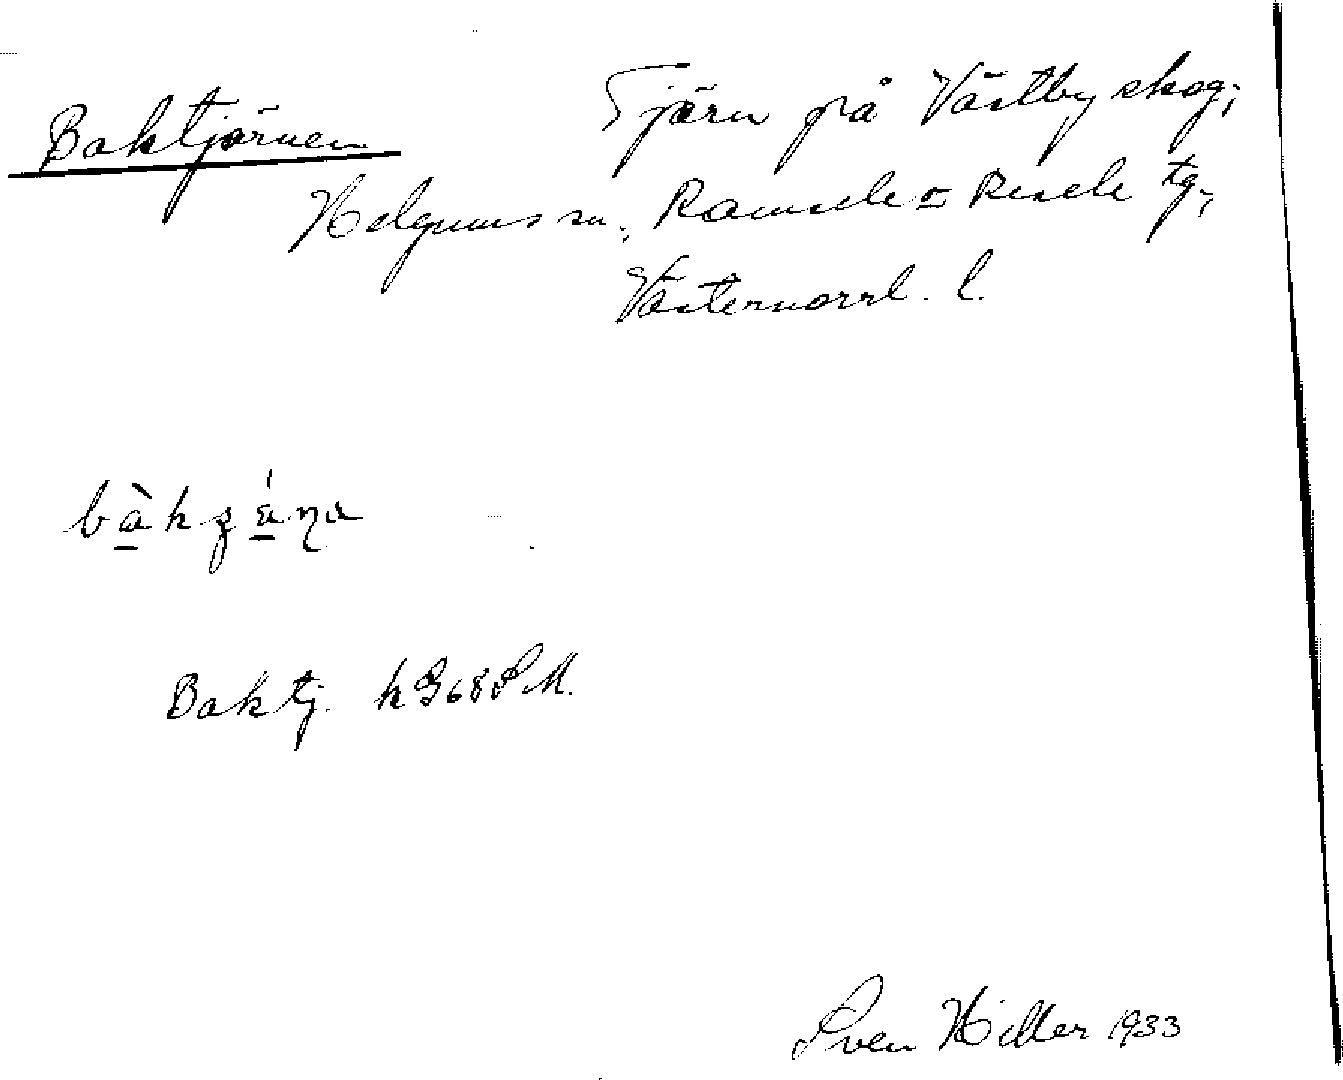 Baktjärnen Tjärn på Västby skog;
Helgums sn., Ramsele = Resele tg.,
Västernorrl. l.
Baktj. k G68 SM.
Sven Hiller 1933